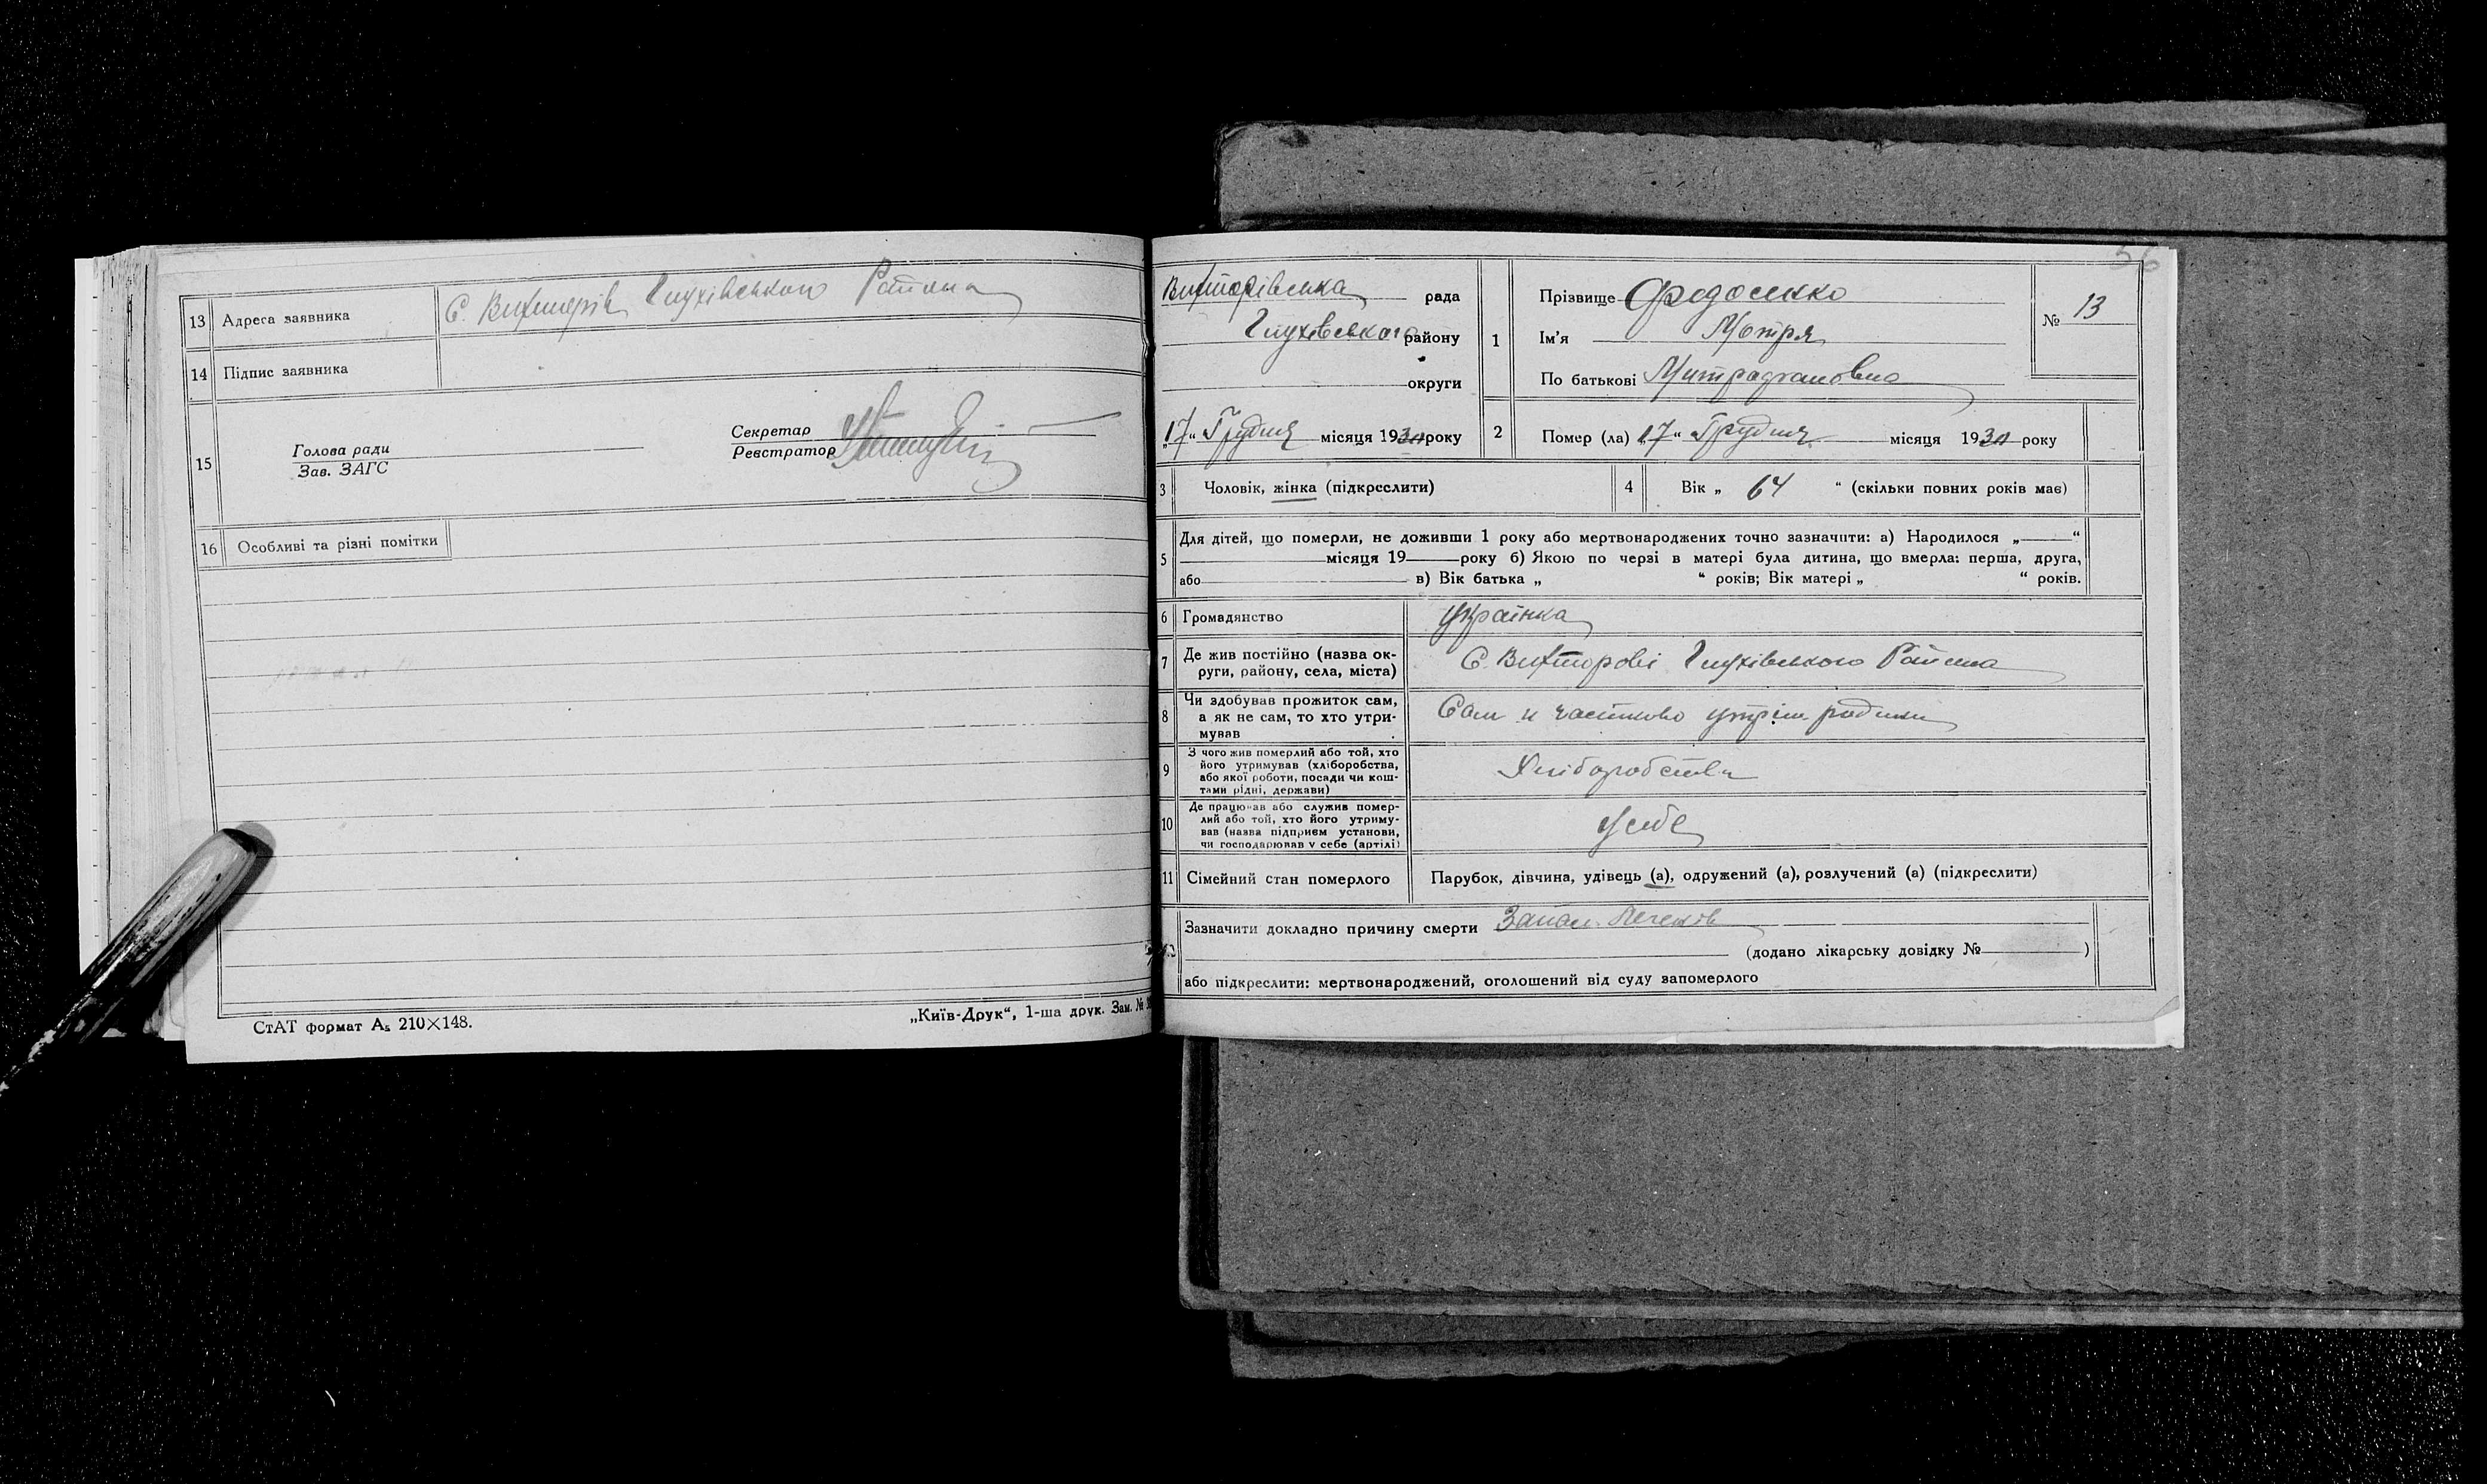 13 Адреса заявника С. Вихторів Глухівського Района
14 Підпис заявника
15 Голова ради
Зав. ЗАГС
Секретар
Реєстратор
16 Особливі та різні помітки
СтАТ формат А₅ 210×148.
„Київ-Друк“, 1-ша друк. Зам. №
56
Вихторівська рада
Глухівського району
округи
„17“ Грудня місяця 1930 року
1 Прізвище Федосенко
Ім'я Мотря
По батькові Митрафановна
№ 13
2 Помер (ла) „17“ Грудня місяця 1930 року
3 Чоловік, жінка (підкреслити)
4 Вік „ 64 “ (скільки повних років має)
5 Для дітей, що померли, не доживши 1 року або мертвонароджених точно зазначити: а) Народилося „ “
місяця 19 року б) Якою по черзі в матері була дитина, що вмерла: перша, друга,
або в) Вік батька „ “ років; Вік матері „ “ років.
6 Громадянство українка
7 Де жив постійно (назва ок-
руги, району, села, міста) С. Вихторові Глухівського Района
8 Чи здобував прожиток сам,
а як не сам, то хто утри-
мував Сам и частково утрим родини
9 З чого жив померлий або той, хто
його утримував (хліборобства,
або якої роботи, посади чи кош-
тами рідні, держави) Хліборобства
10 Де працював або служив помер-
лий або той, хто його утриму-
вав (назва підприєм установи,
чи господарював у себе (артілі) у себе
11 Сімейний стан померлого Парубок, дівчина, удівець (а), одружений (а), розлучений (а) (підкреслити)
Зазначити докладно причину смерти Запал. Легенів
(додано лікарську довідку № )
або підкреслити: мертвонароджений, оголошений від суду запомерлого